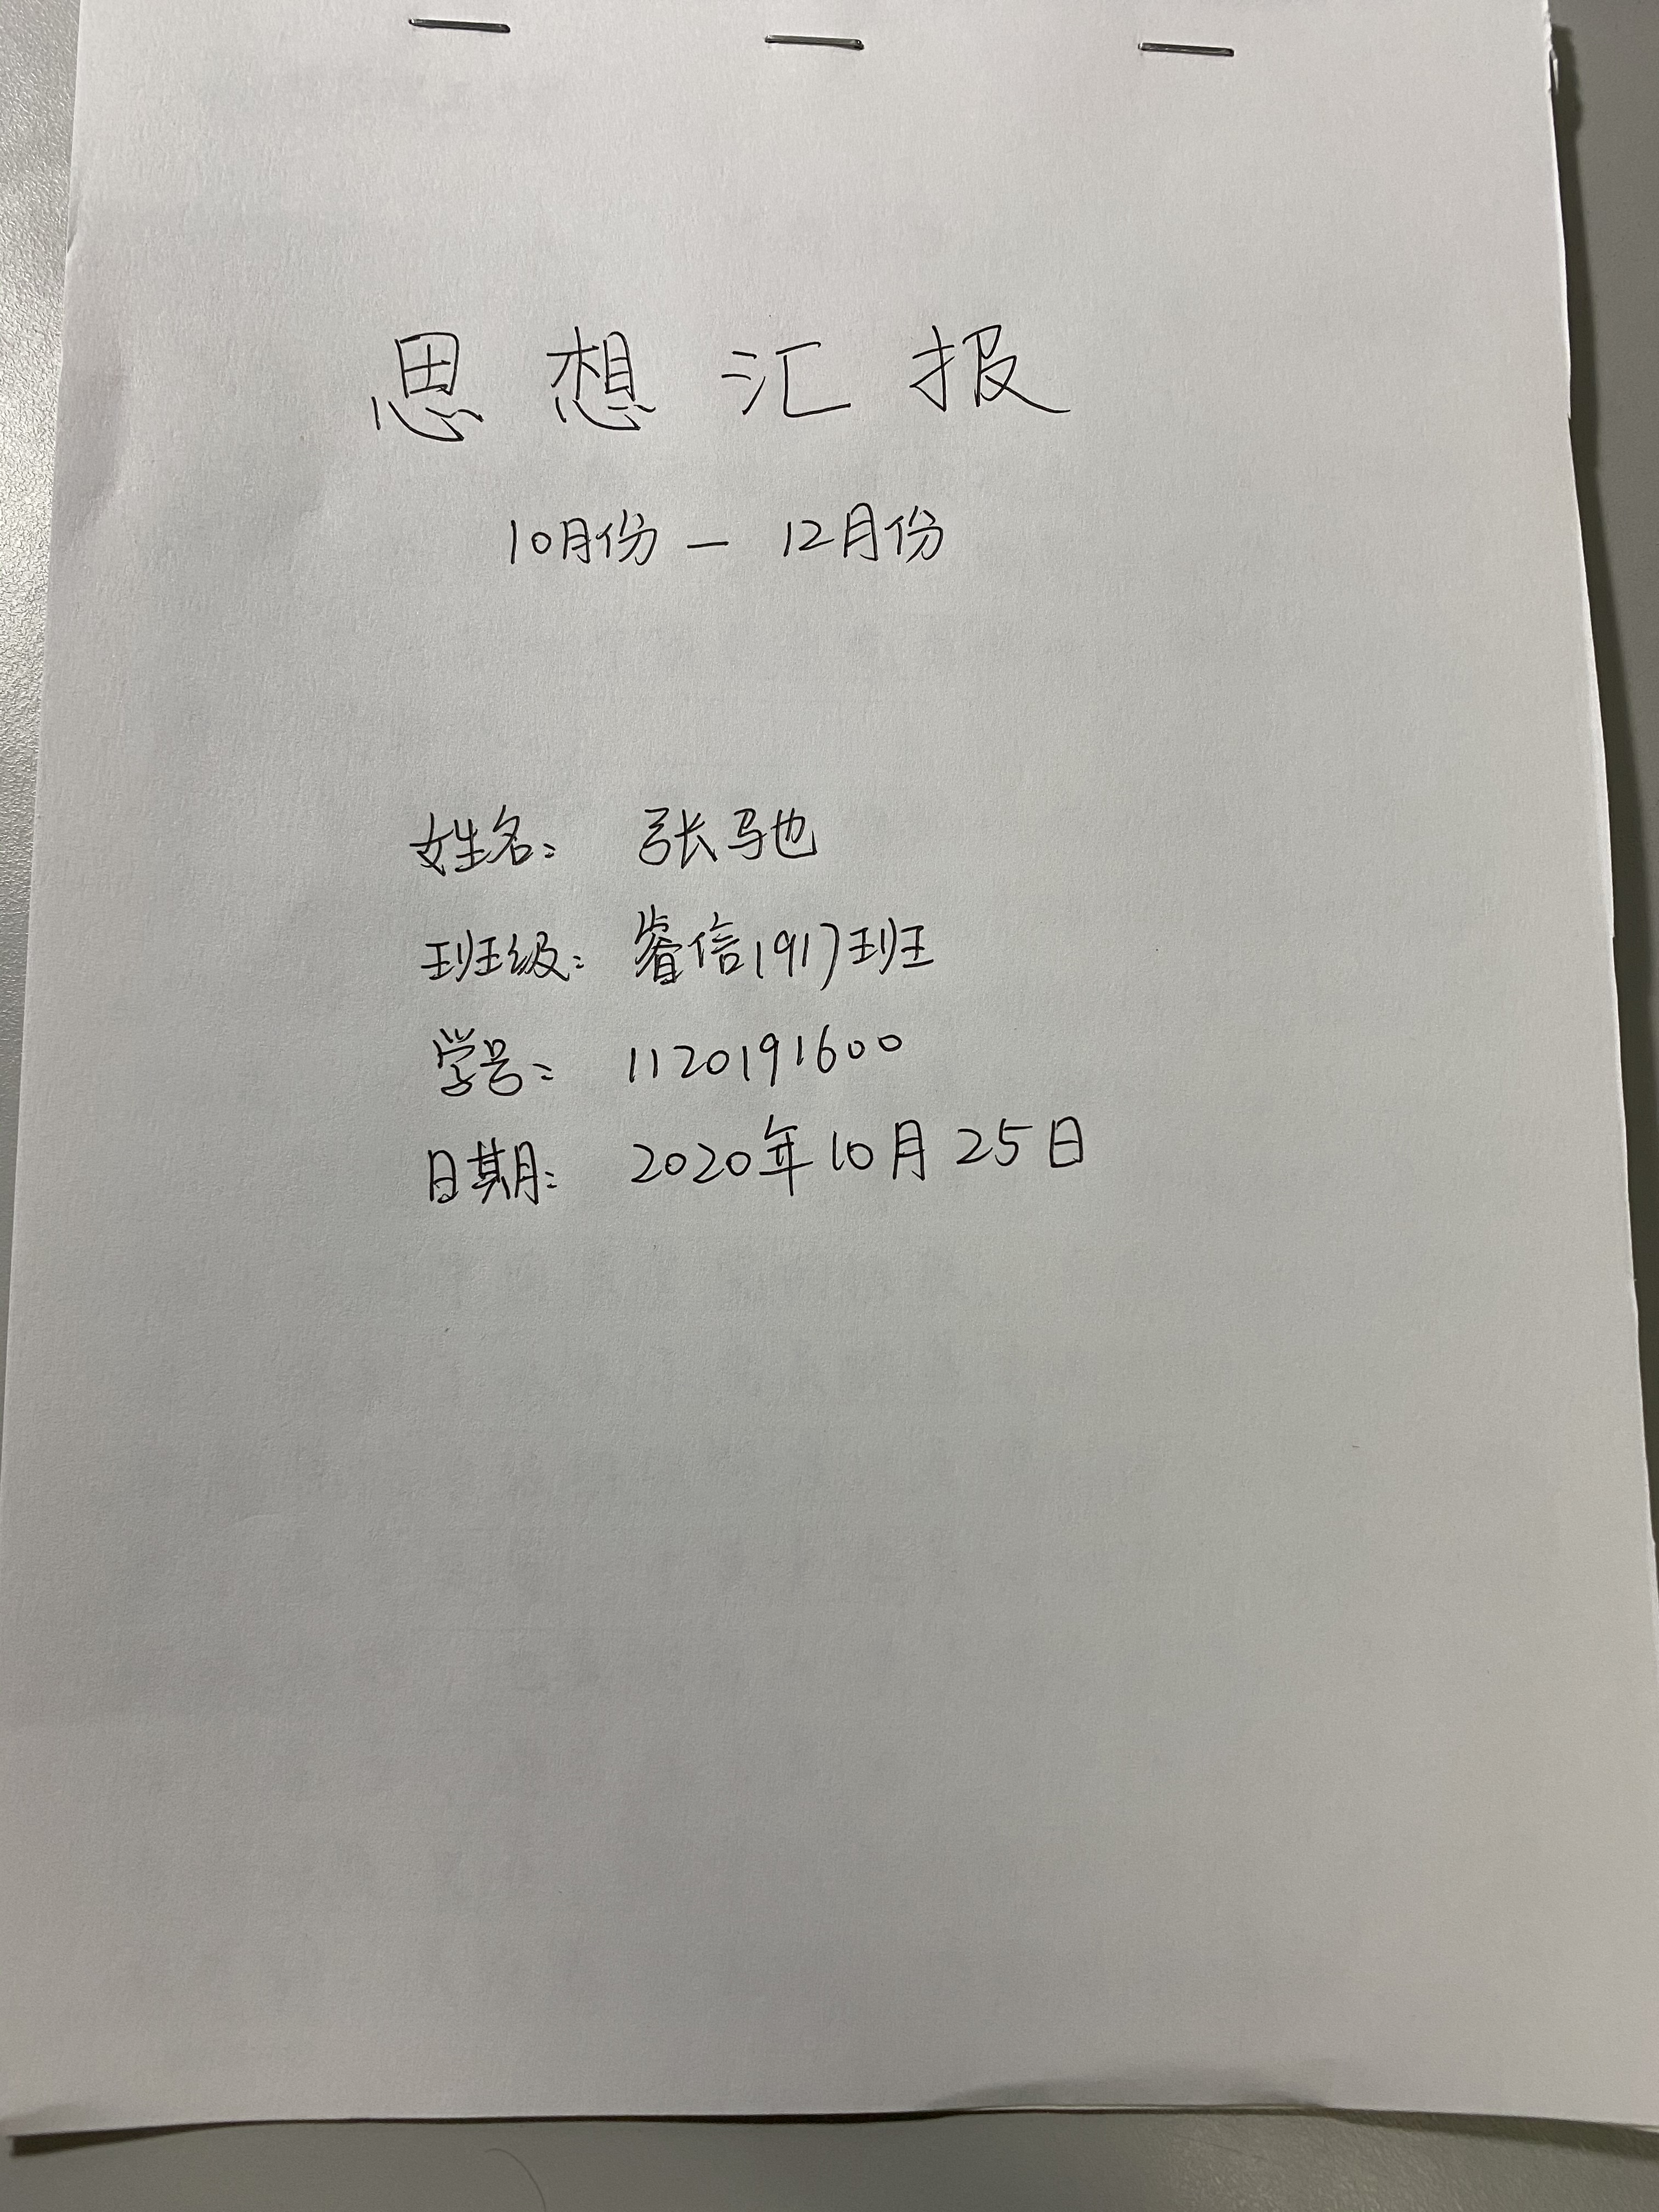 思想汇报
10月份 — 12月份
姓名： 张驰
班级： 睿信1917班
学号： 1120191600
日期： 2020年10月25日